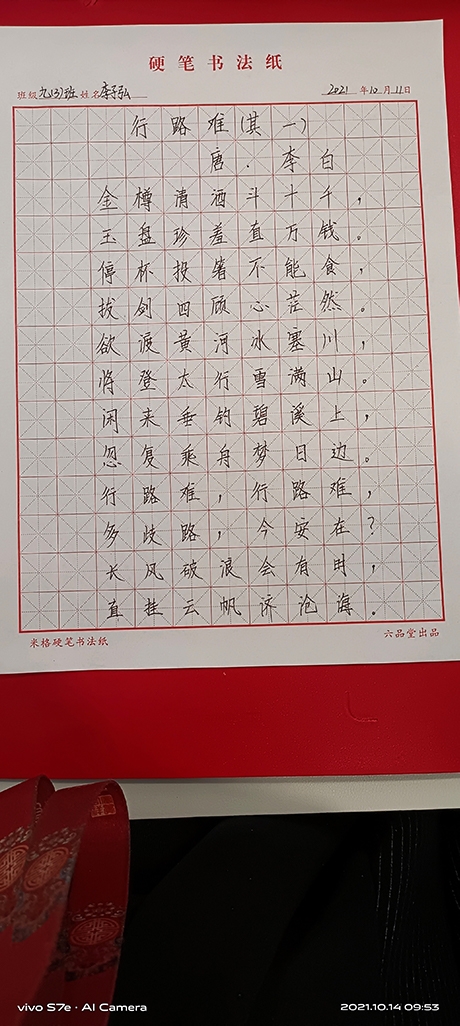 硬笔书法纸
班级九(3)班 姓名李子弘 2021年10月11日
行路难(其一)
唐.李白
金樽清酒斗十千，
玉盘珍羞直万钱。
停杯投箸不能食，
拔剑四顾心茫然。
欲渡黄河冰塞川，
将登太行雪满山。
闲来垂钓碧溪上，
忽复乘舟梦日边。
行路难，行路难，
多歧路，今安在？
长风破浪会有时，
直挂云帆济沧海。
米格硬笔书法纸 六品堂出品
vivo S7e · AI Camera 2021.10.14 09:53